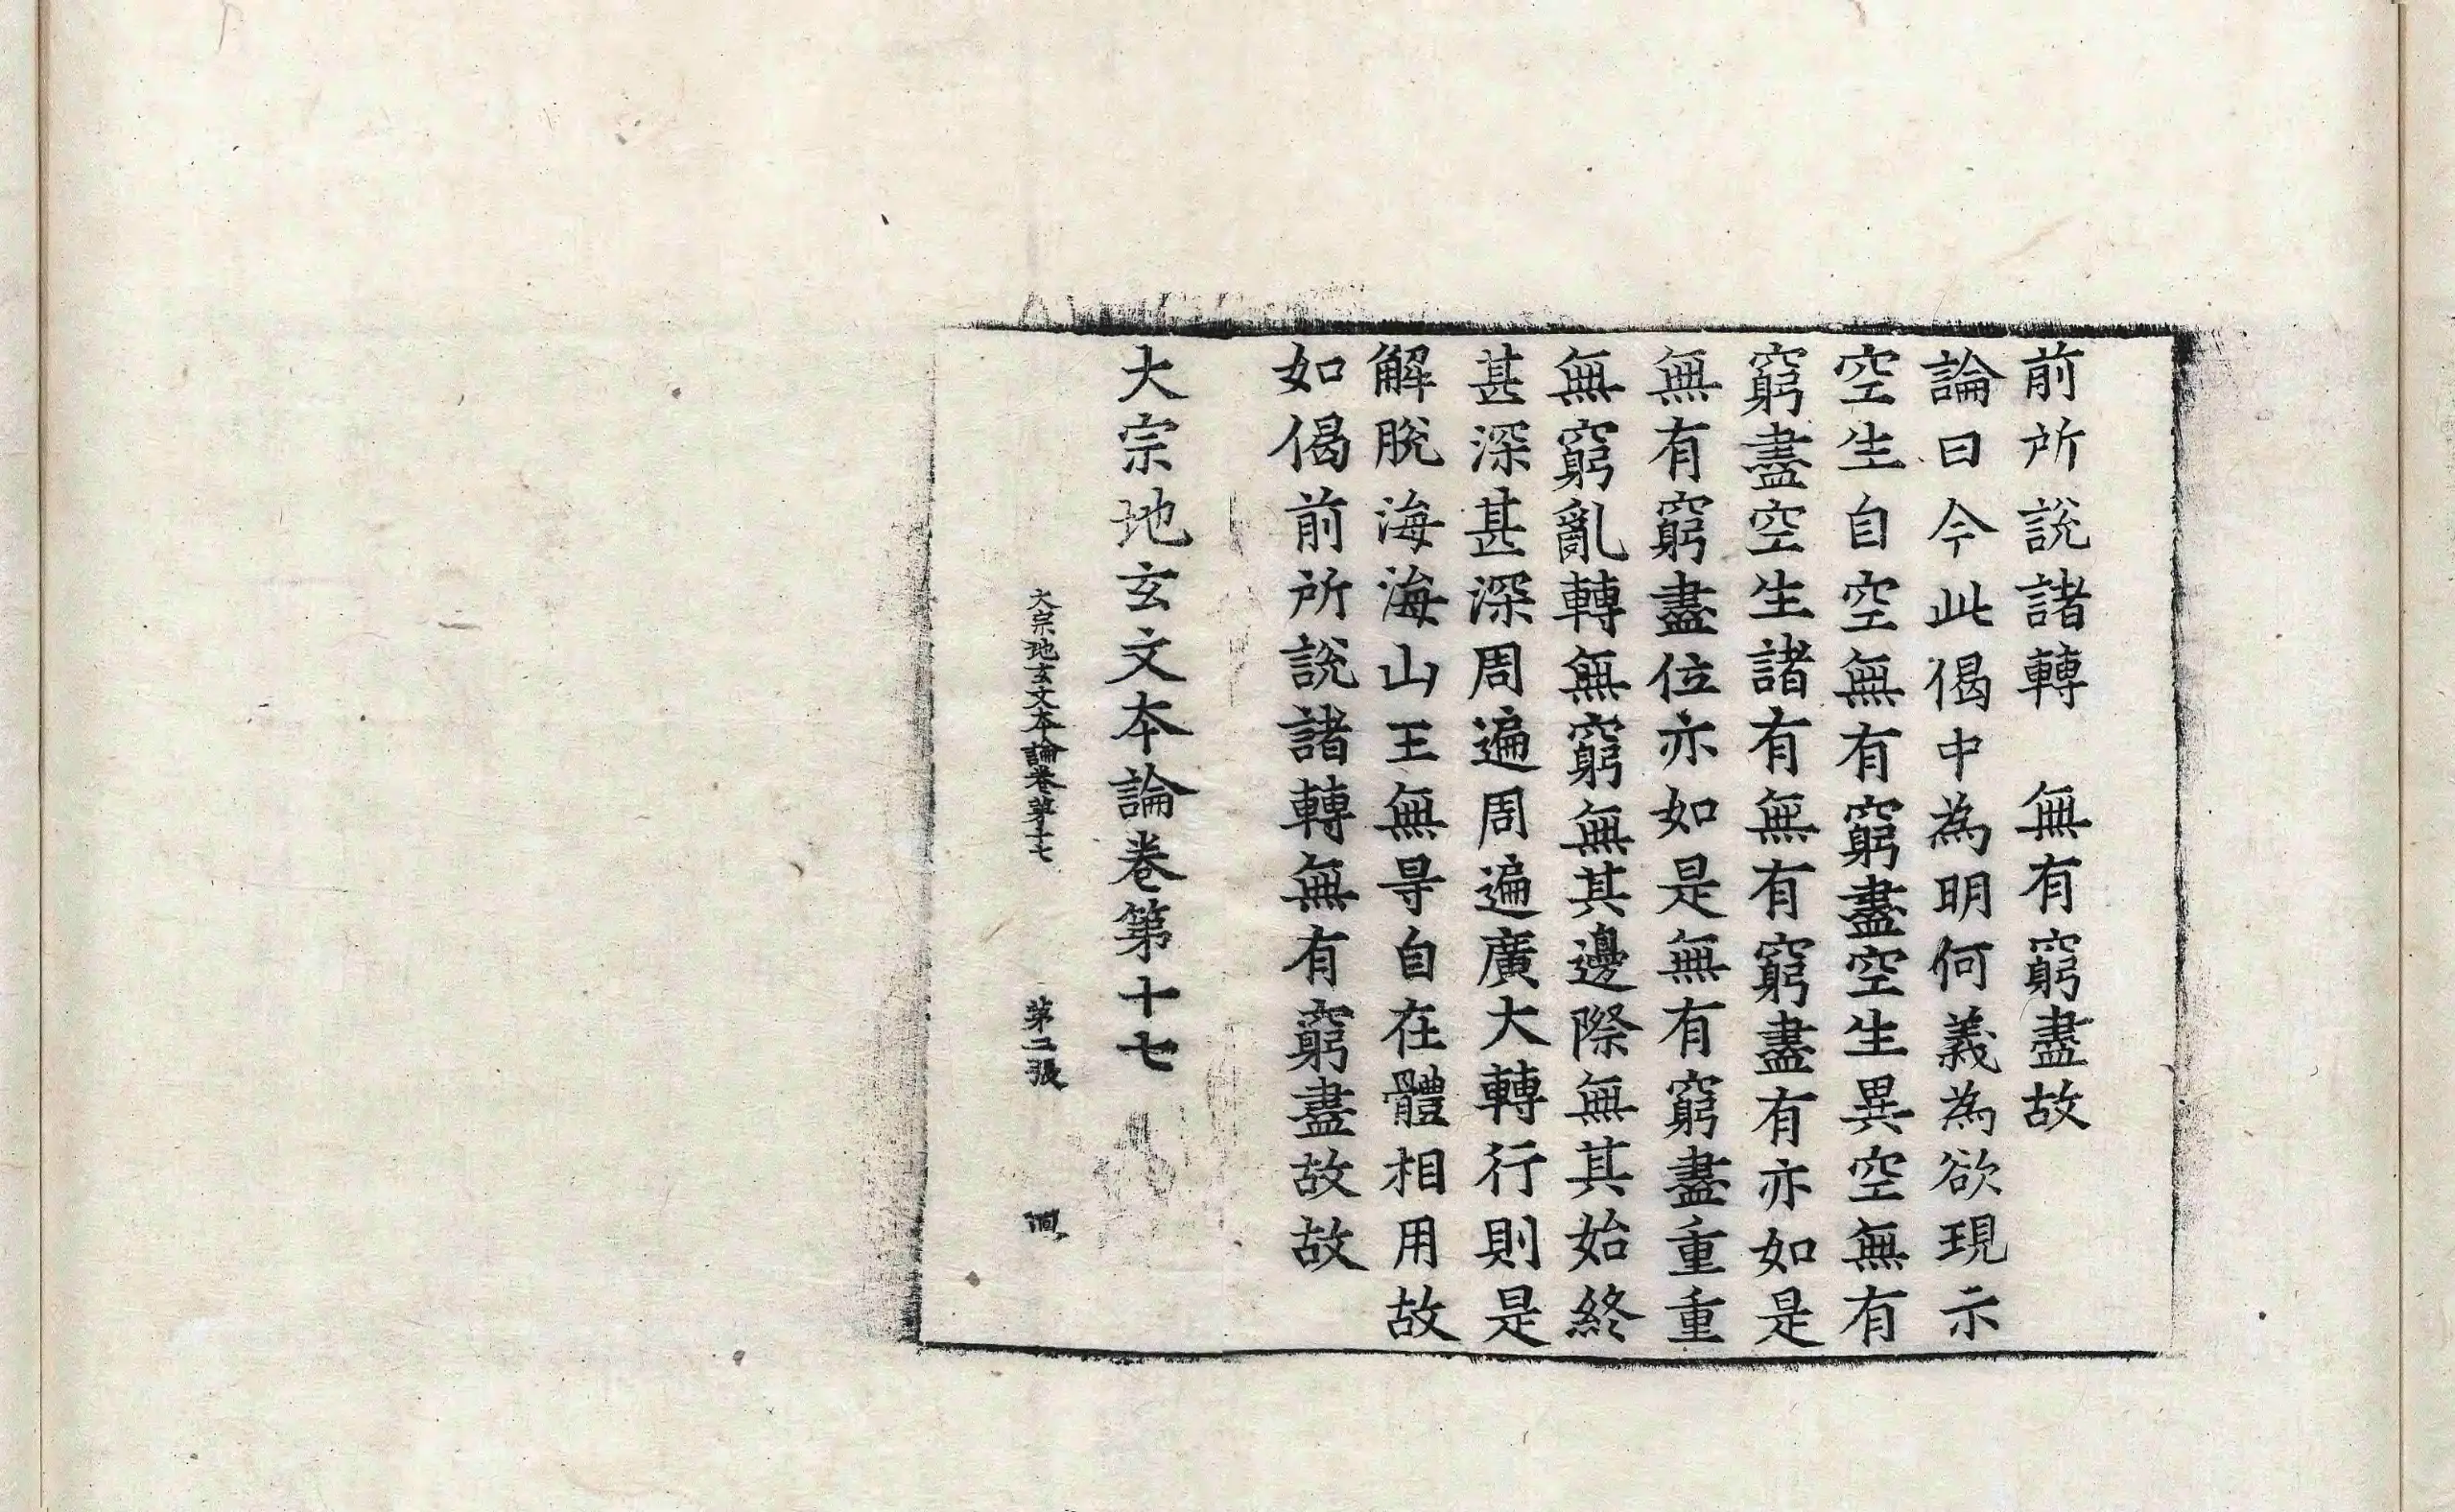 前所説諸轉　無有窮盡故
論曰今此偈中為明何義為欲現示
空生自空無有窮盡空生異空無有
窮盡空生諸有無有窮盡有亦如是
無有窮盡位亦如是無有窮盡重重
無窮亂轉無窮無其邊際無其始終
甚深甚深周遍周遍廣大轉行則是
解脫海海山王無㝵自在體相用故
如偈前所説諸轉無有窮盡故故
大宗地玄文本論卷第十七
大宗地玄文本論卷第十七　第二張